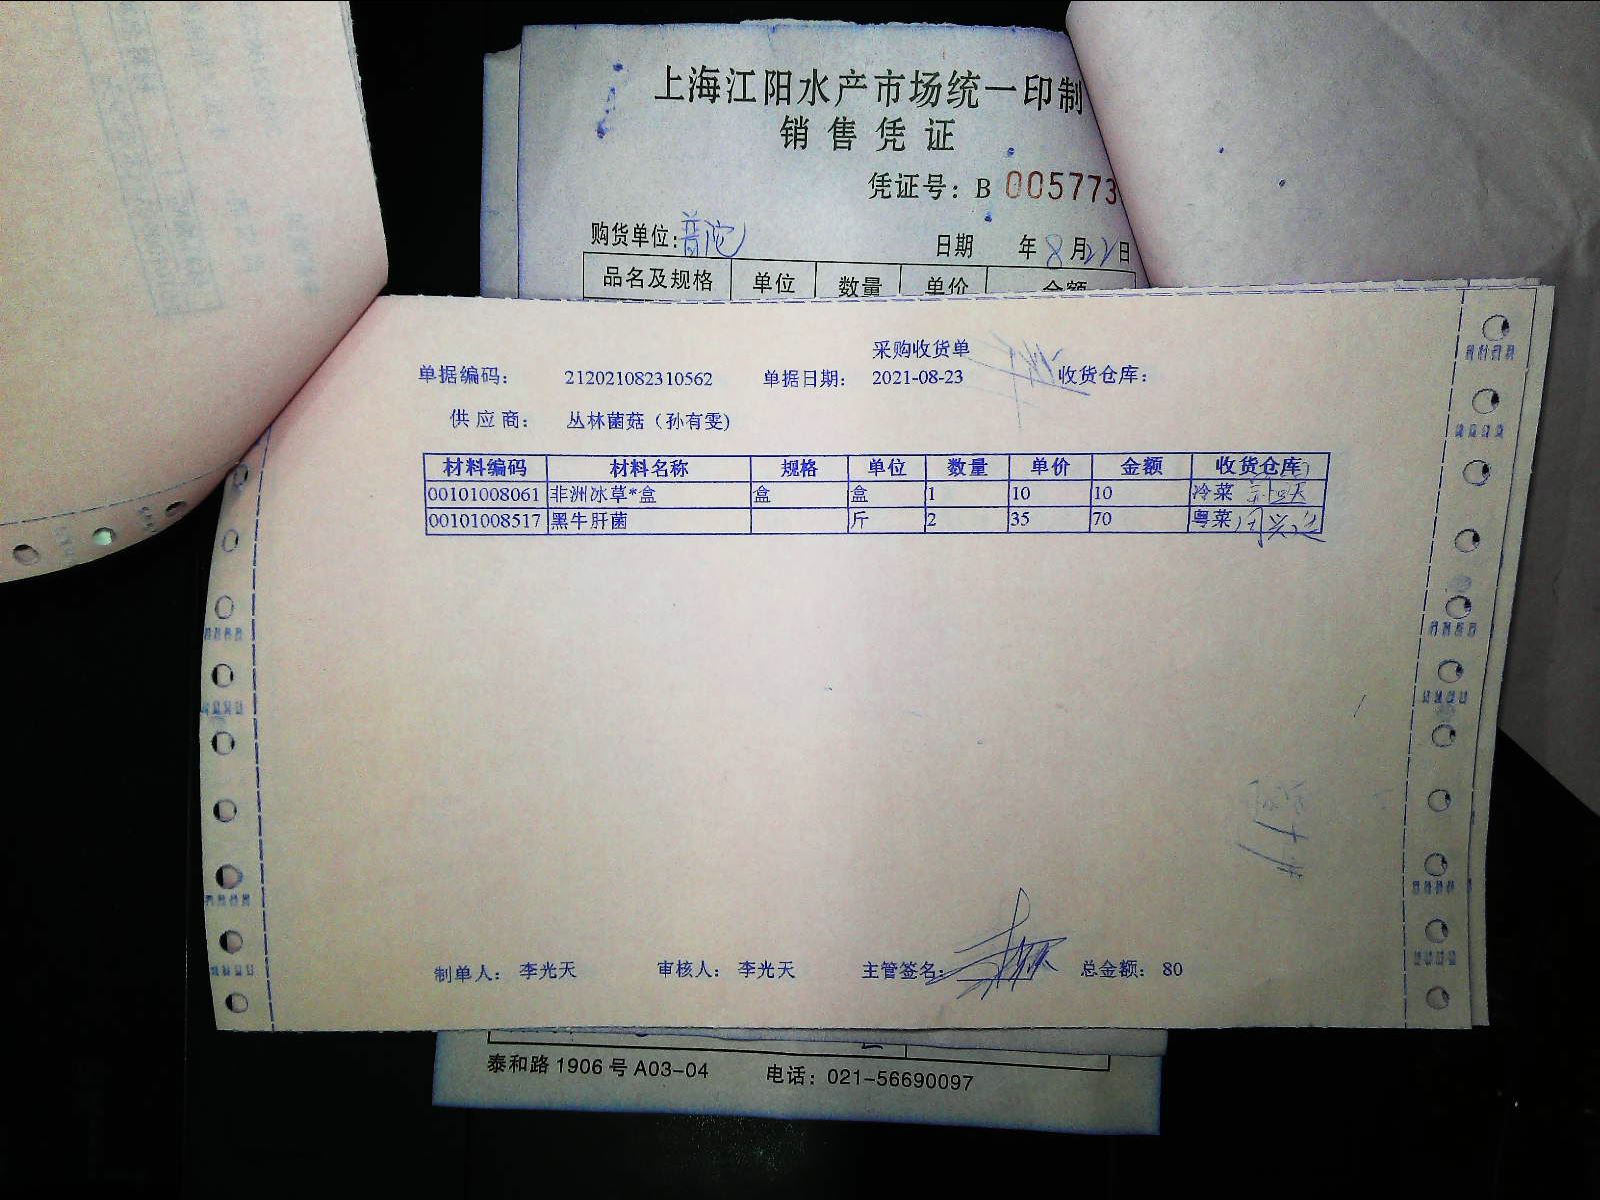 上海江阳水产市场统一印制
销售凭证
凭证号：B 005773
购货单位：普陀 日期 年8月22日
品名及规格 单位 数量 单价 金额
采购收货单
单据编码： 212021082310562 单据日期： 2021-08-23 收货仓库：
供应商： 丛林菌菇（孙有雯)
材料编码 材料名称 规格 单位 数量 单价 金额 收货仓库
00101008061 非洲冰草*盒 盒 盒 1 10 10 冷菜
00101008517 黑牛肝菌 斤 2 35 70 粤菜
制单人： 李光天 审核人： 李光天 主管签名： 总金额： 80
泰和路1906号A03-04 电话：021-56690097